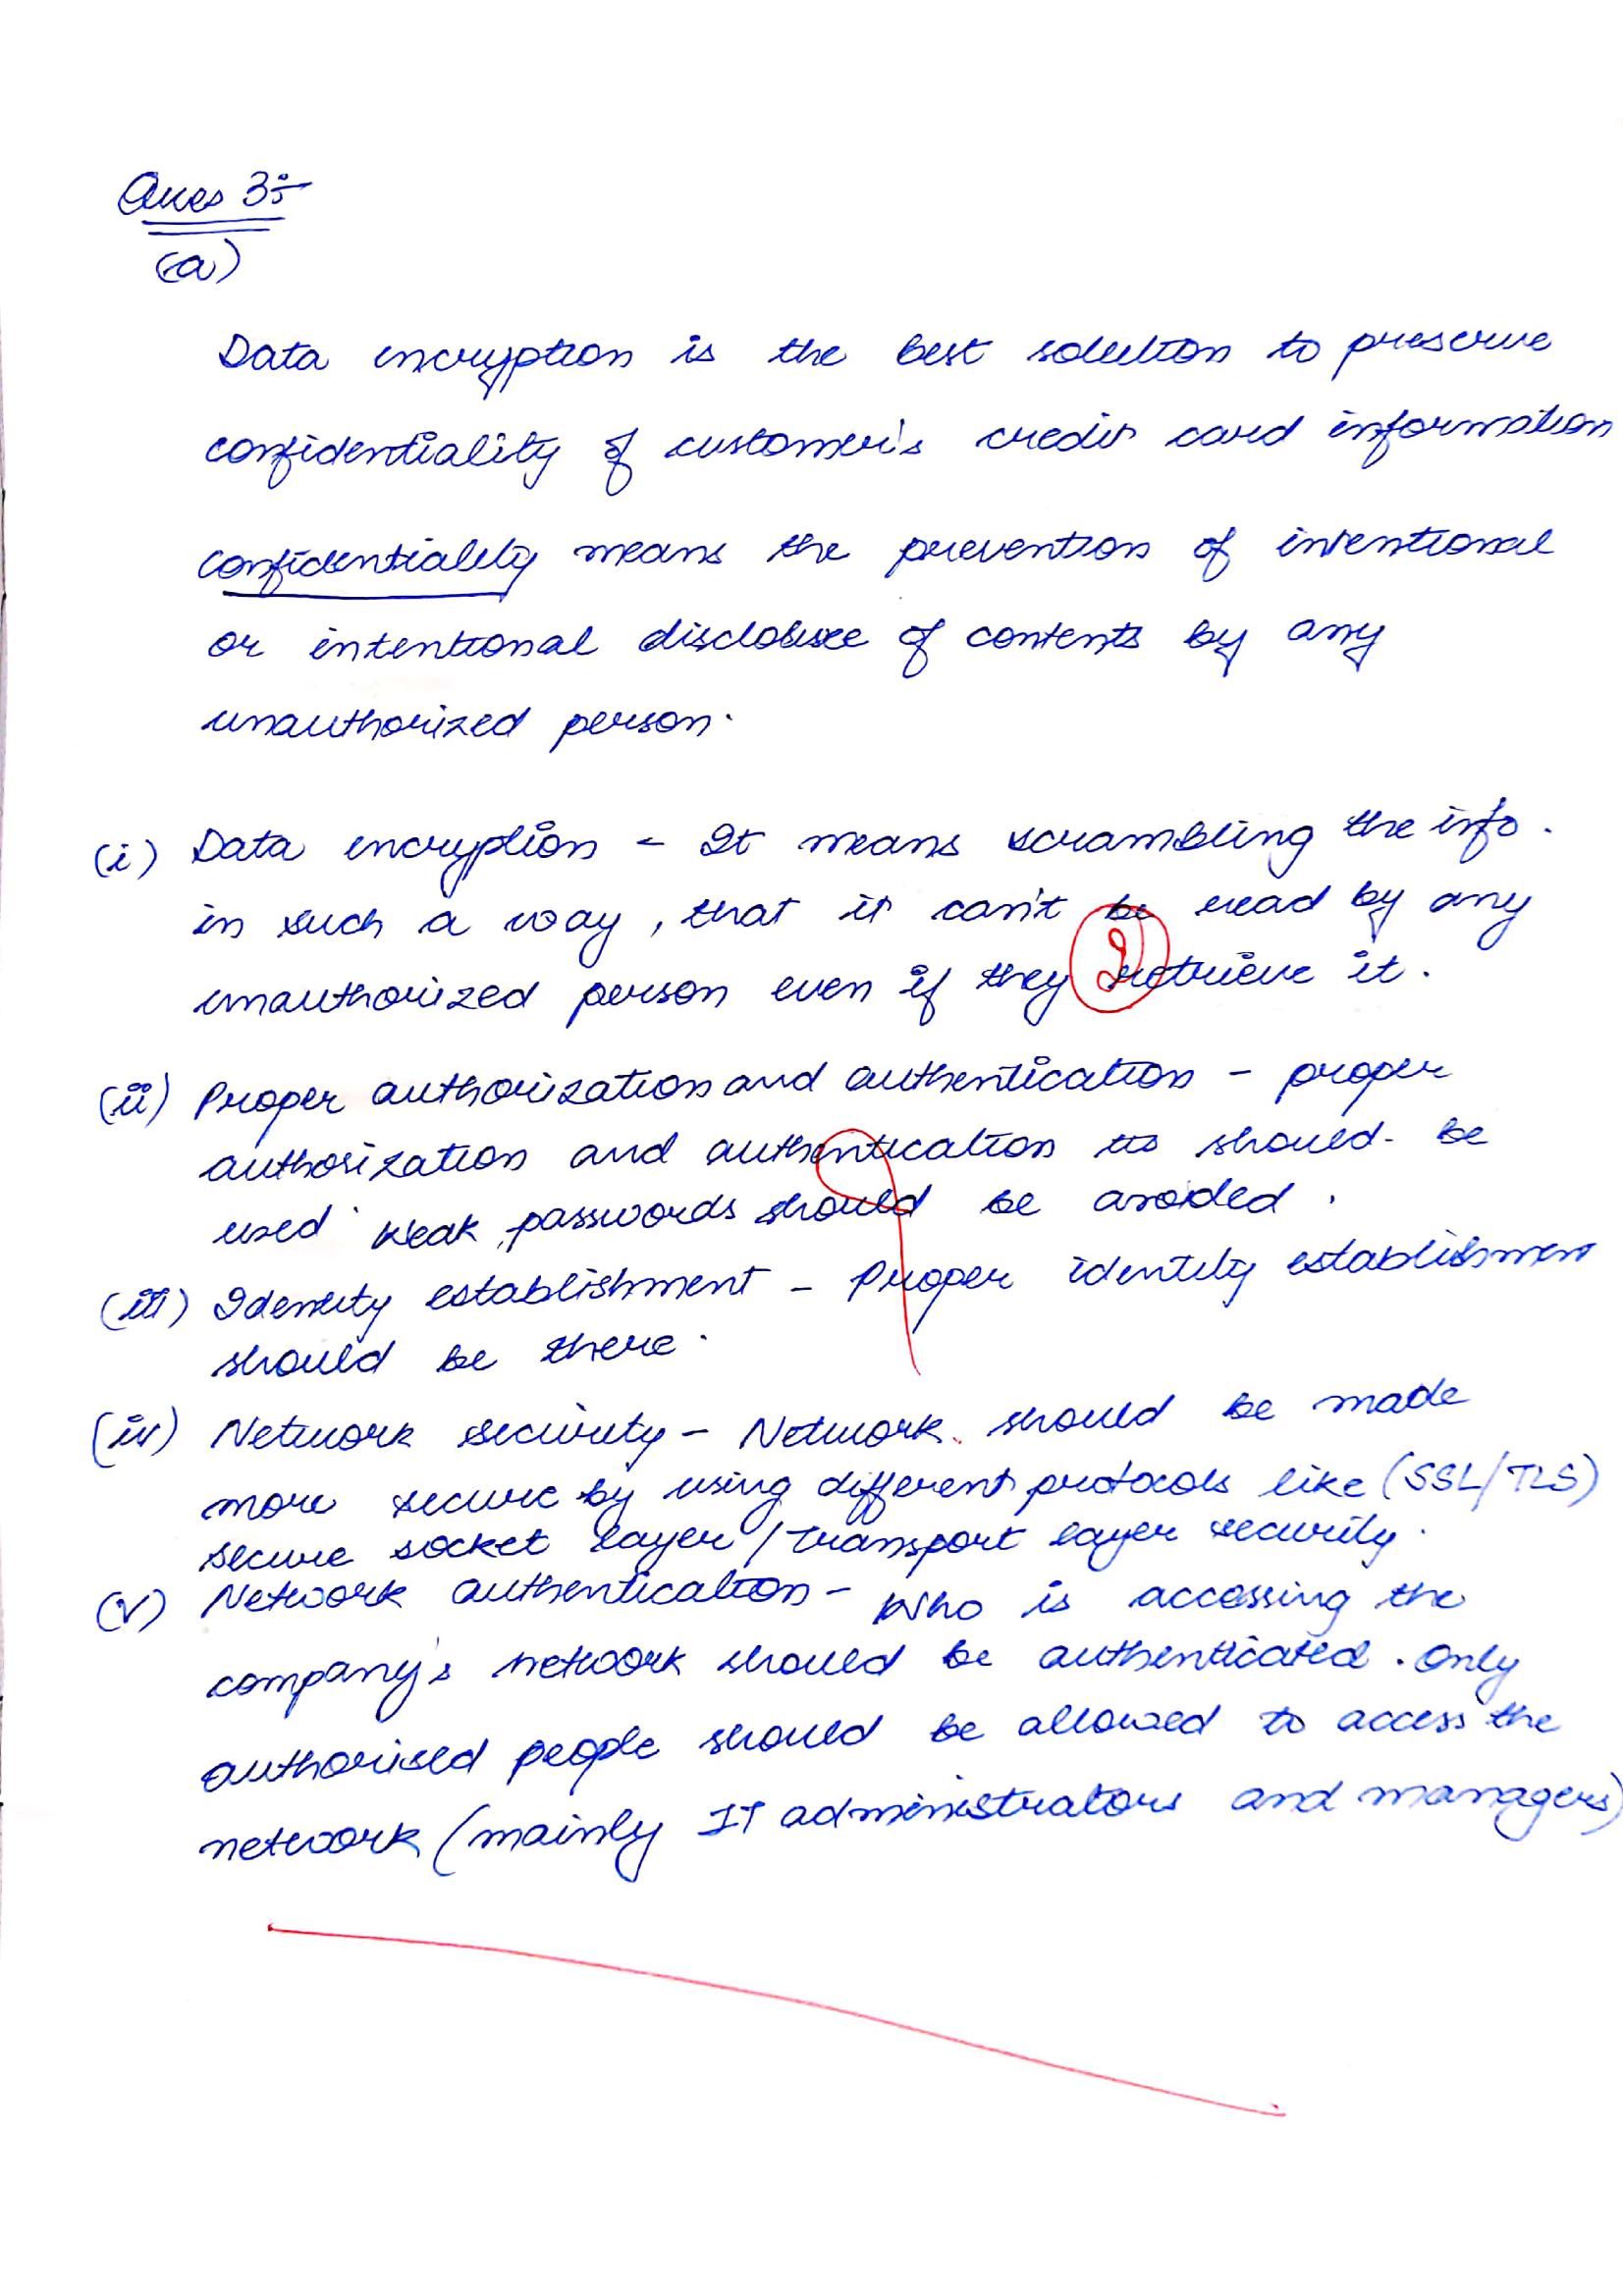 Ques 3:-
(a)
Data encryption is the best solution to preserve
confidentiality of customer's credit card information
confidentiality means the prevention of intentional
or intentional disclosure of contents by any
unauthorized person.
(i) Data encryption - It means scrambling the info.
in such a way, that it can't be read by any
2
unauthorized person even if they retrieve it.
(ii) Proper authorization and authentication - proper
authorization and authentication should be
used weak passwords should be avoided.
(iii) Identity establishment - Proper identity establishment
should be there.
(iv) Network security - Network should be made
more secure by using different protocols like (SSL/TLS)
secure socket layer/transport layer security.
(v) Network authentication - Who is accessing the
company's network should be authenticated. Only
authorised people should be allowed to access the
network (mainly IT administrators and managers)